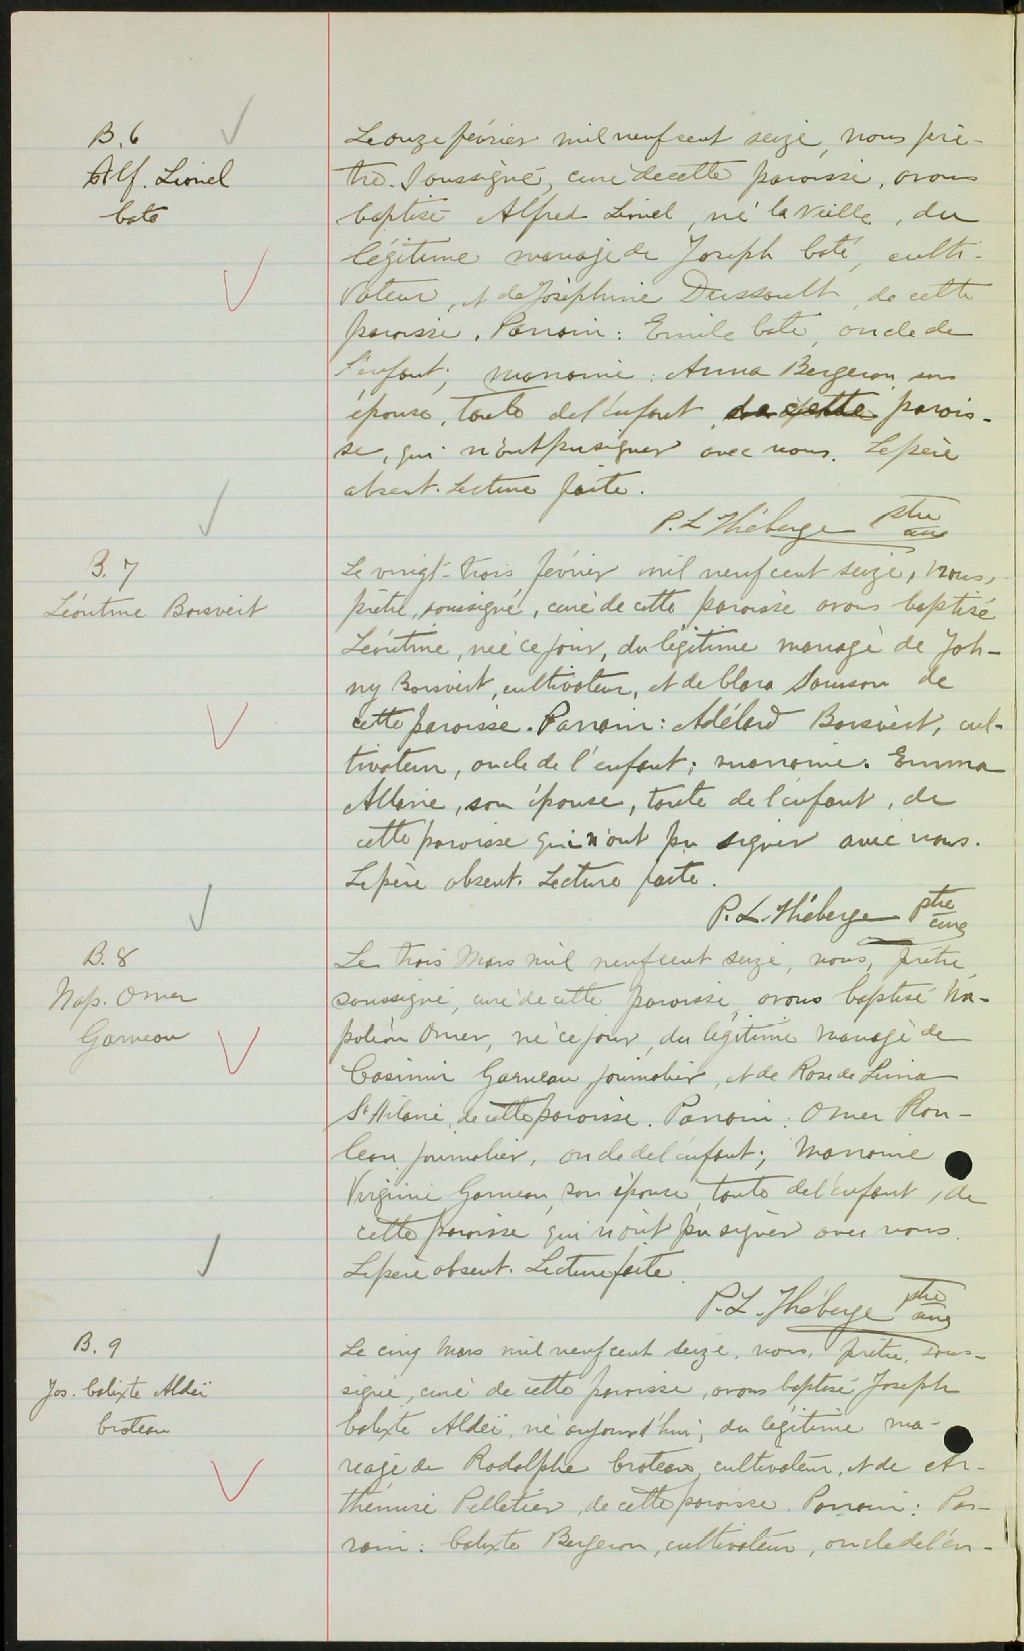 B. 6
Alf. Lionel
Coté
Le onze février mil neuf cent seize, nous prê-
tre soussigné, curé de cette paroisse, avons
baptisé Alfred Lionel, né la veille, du
légitime mariage de Joseph Coté, culti-
vateur, et de Joséphine Dussault de cette
paroisse. Parrain : Emile Coté, oncle de
l'enfant; marraine : Anna Bergeron, son
épouse, tante de l'enfant, de cette parois-
se, qui n'ont pu signer avec nous. Le père
absent. Lecture faite.
P. L. Théberge ptre
curé
B. 7
Léontine Boisvert
Le vingt-trois février mil neuf cent seize, nous,
prêtre, soussigné, curé de cette paroisse avons baptisé
Léontine, née ce jour, du légitime mariage de Joh-
ny Boisvert, cultivateur, et de Clara Samson de
cette paroisse. Parrain : Adélard Boisvert, cul-
tivateur, oncle de l'enfant; marraine : Emma
Allaire, son épouse, tante de l'enfant, de
cette paroisse qui n'ont pu signer avec nous.
Le père absent. Lecture faite.
P. L. Théberge ptre
curé
B. 8
Nap. Omer
Garneau
Le trois Mars mil neuf cent seize, nous, prêtre
soussigné, curé de cette paroisse, avons baptisé Na-
poléon Omer, né ce jour, du légitime mariage de
Casimir Garneau, journalier, et de Rose de Lima
St Hilaire, de cette paroisse. Parrain : Omer Rou-
leau journalier, oncle de l'enfant; Marraine
Virginie Garneau, son épouse, tante de l'enfant, de
cette paroisse qui n'ont pu signer avec nous.
Le père absent. Lecture faite.
P. L. Théberge ptre
curé
B. 9
Jos. Calixte Aldeï
Croteau
Le cinq Mars mil neuf cent seize, nous, prêtre, sous-
signé, curé de cette paroisse, avons baptisé Joseph
Calixte Aldeï, né aujourd'hui, du légitime ma-
riage de Rodolphe Croteau, cultivateur, et de Ar-
thémise Pelletier, de cette paroisse. Parrain : Par-
rain : Calixte Bergeron, cultivateur, oncle de l'en-